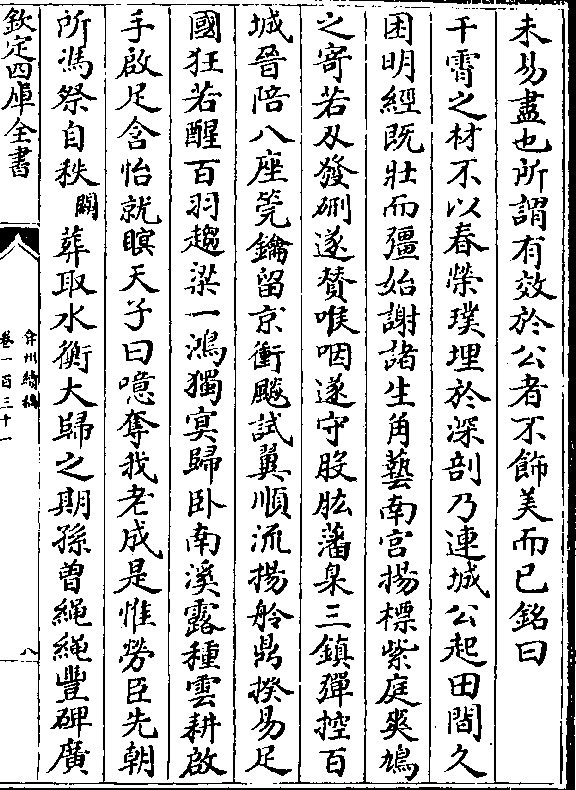 未易盡也所謂有效於公者不飾美而已銘曰
干霄之材不以春榮璞埋於深剖乃連城公起田間久
困明經既壯而彊始謝諸生角藝南宮揚標紫庭爽鳩
之寄若刄發硎遂賛喉咽遂守股肱藩臬三鎮彈控百
城晉陪八座筦鑰留京衝飇試翼順流揚舲鼎揆易足
國狂若醒百羽趨梁一鴻獨冥歸卧南溪露種雲耕啟
手啟足含怡就瞑天子曰噫奪我老成是惟勞臣先朝
所馮祭自秩闕葬取水衡大歸之期孫曾繩繩豐碑廣
欽定四庫全書
弇州續稿
卷一百三十一
八